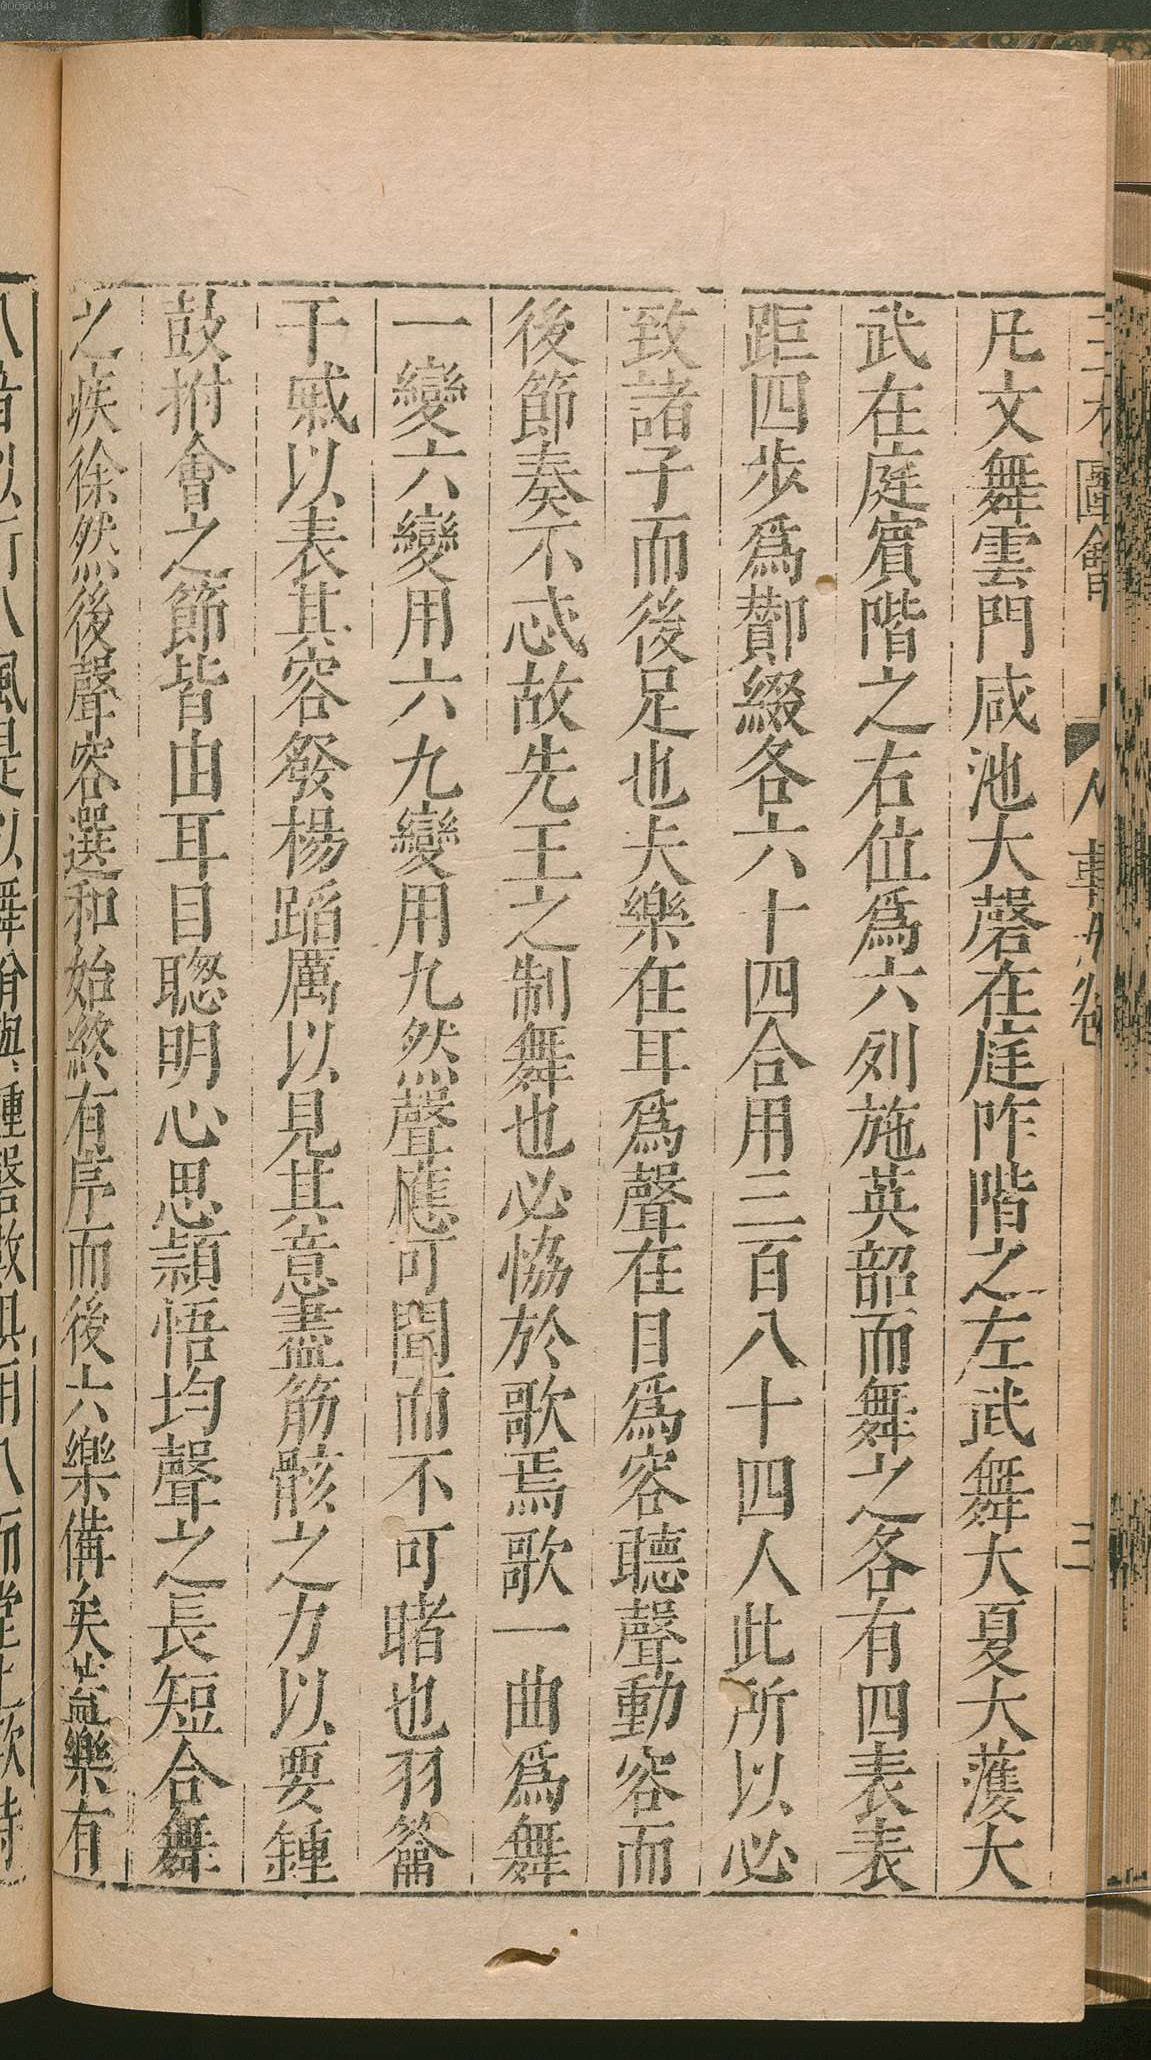 凡文舞雲門咸池大磬在庭阼階之左武舞大夏大濩大
武在庭賓階之右位爲六列施英韶而舞之各有四表表
距四步爲酇綴各六十四合用三百八十四人此所以必
致諸子而後足也夫樂在耳爲聲在目爲容聽聲動容而
後節奏不忒故先王之制舞也必恊於歌焉歌一曲爲舞
一變六變用六九變用九然聲應可聞而不可睹也羽籥
干戚以表其容發楊蹈厲以見其意盡筋骸之力以要鍾
鼓拊會之節皆由耳目聦明心思頴悟均聲之長短合舞
之疾徐然後聲容選和始終有序而後六樂備矣葢樂有
八音以行八風是以舞佾與鍾磬數俱用八而堂上歌詩
00060348